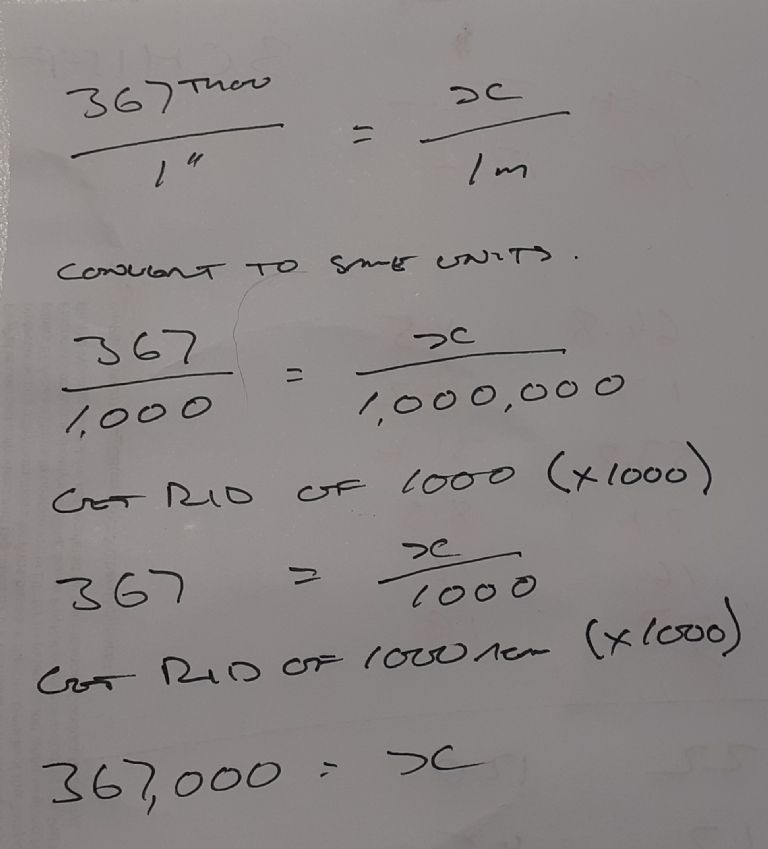 367 Thou = x
1" 1m
CONVERT TO SAME UNITS.
367 = x
1,000 1,000,000
GET RID OF 1000 (x1000)
367 = x
1000
GET RID OF 1000 (x1000)
367,000 = x